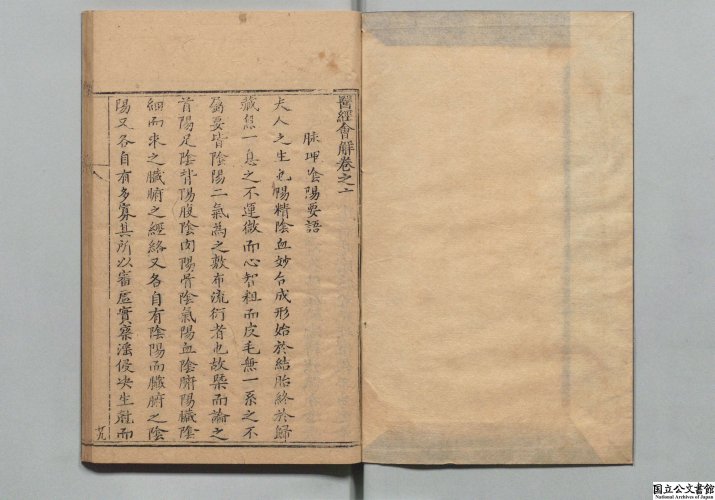 醫經會解卷之六
脉理陰陽要語
夫人之生也陽精陰血妙合成形始於結胎終於歸
藏無一息之不運微而心智粗而皮毛無一系之不
屬要皆陰陽二氣為之敷布流衍者也故槩而論之
首陽足陰背陽腹陰肉陽骨陰氣陽血陰腑陽臟陰
細而求之臟腑之經絡又各自有陰陽而臟腑之陰
陽又各自有多寡其所以審虛實察淫侵决生尅而
国立公文書館
National Archives of Japan